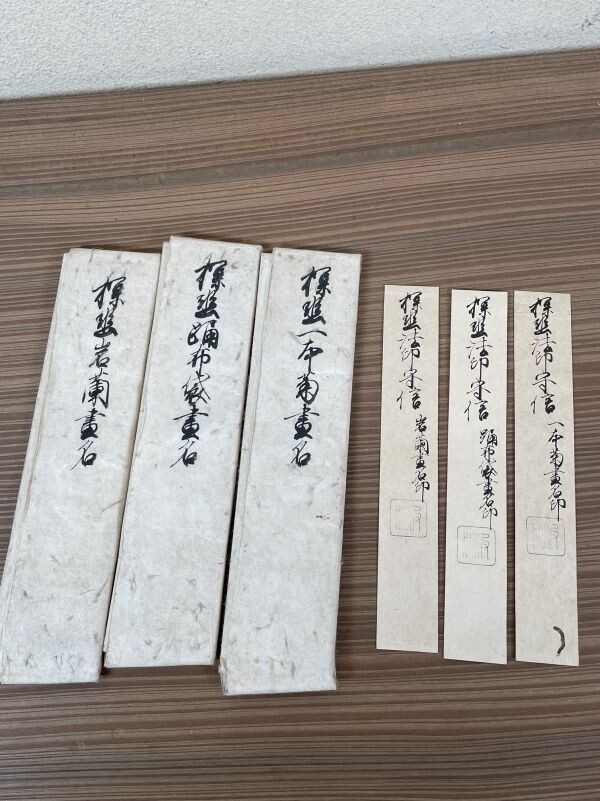 探幽法印守信 一本菊畫名印
探幽法印守信 踊布袋畫名印
探幽法印守信 岩蘭畫名印
探幽一本菊畫名
探幽踊布袋畫名
探幽岩蘭畫名